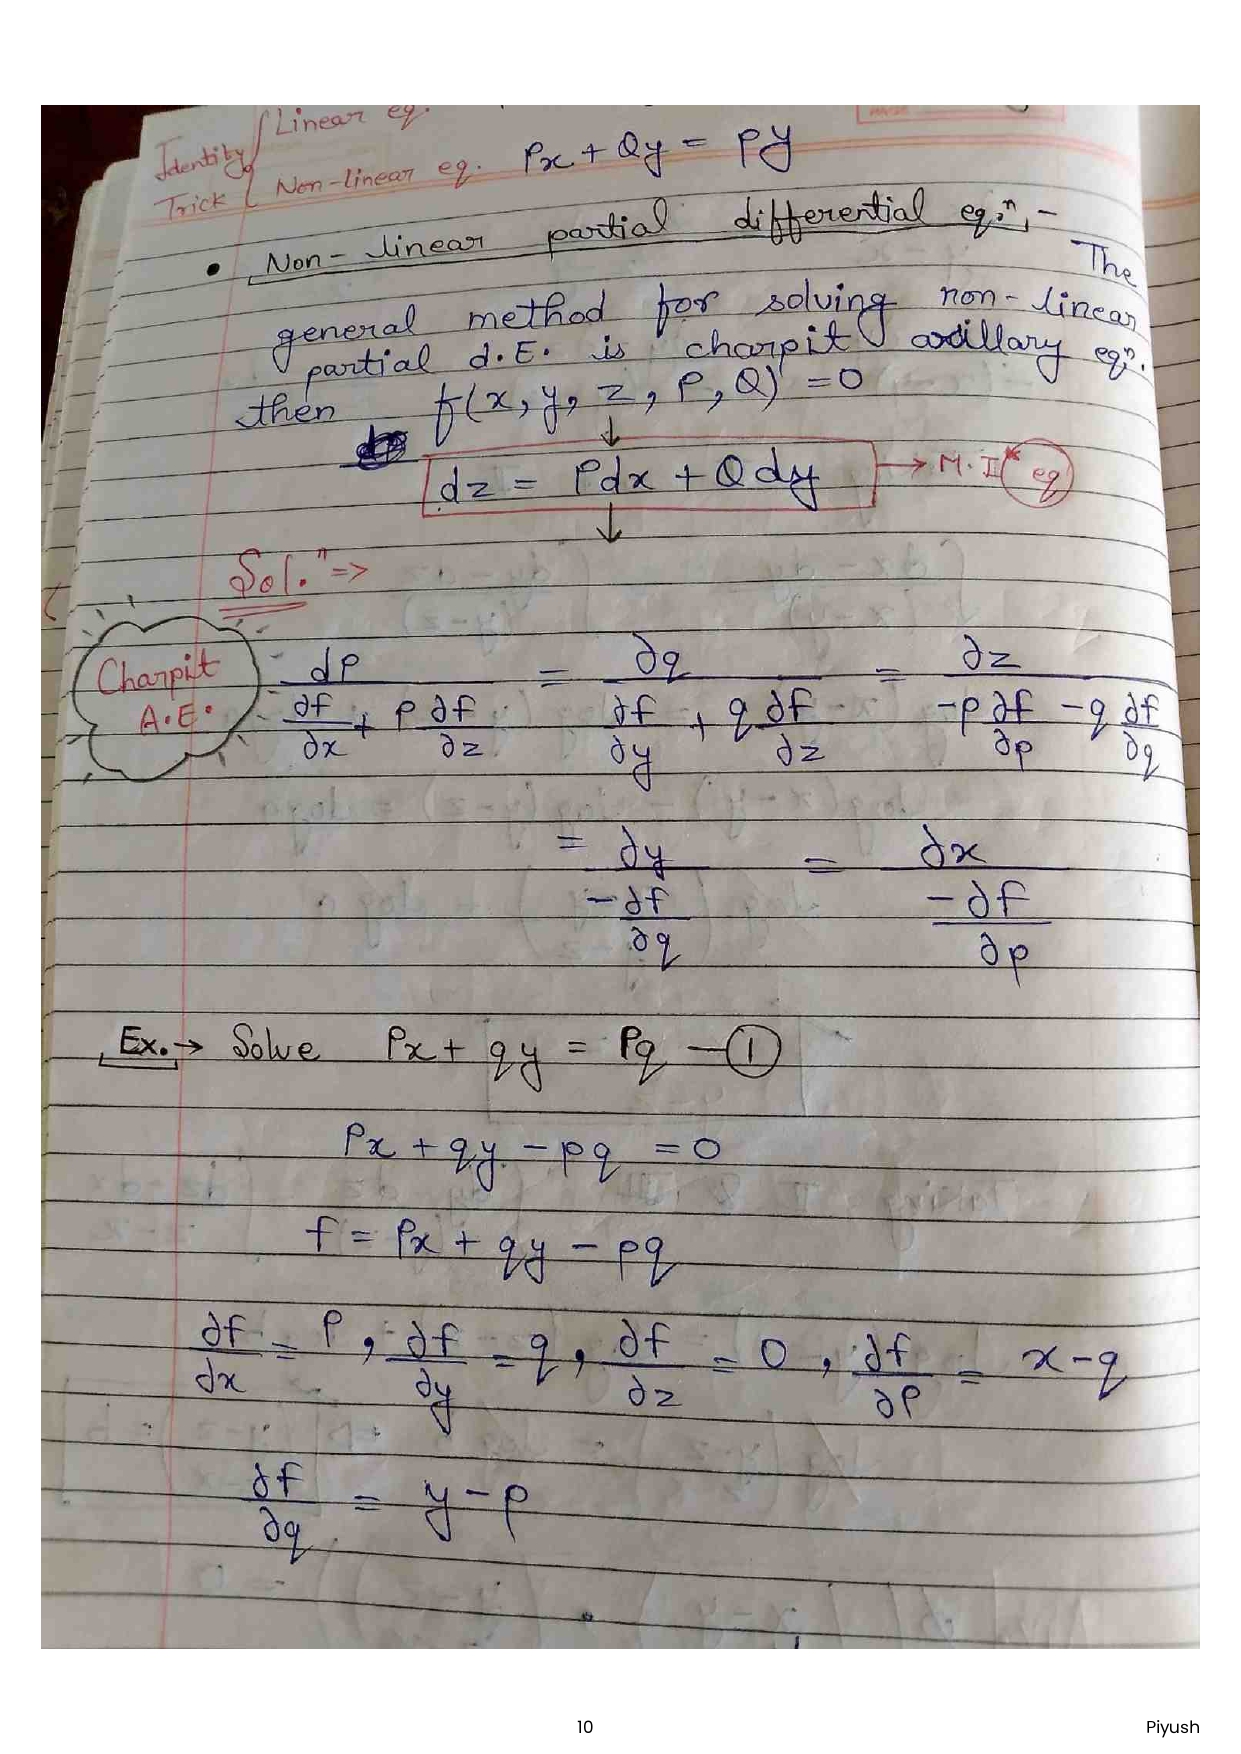 Linear eq.
Identity
Trick
Non-linear eq. Px + Qy = PY
• Non-linear partial differential eq.ⁿ, -
The
general method for solving non-linear
partial d.E. is charpit axillary eqⁿ.
then f(x, y, z, P, Q) = 0
↓
dz = Pdx + Qdy → M.I* eq
↓
Sol.ⁿ =>
Charpit
A.E.
dP / (∂f/∂x + P ∂f/∂z) = ∂q / (∂f/∂y + q ∂f/∂z) = ∂z / (-p ∂f/∂p - q ∂f/∂q)
= ∂y / (-∂f/∂q) = ∂x / (-∂f/∂p)
Ex. → Solve Px + qy = Pq — ①
Px + qy - pq = 0
f = Px + qy - pq
∂f/∂x = P, ∂f/∂y = q, ∂f/∂z = 0, ∂f/∂P = x - q
∂f/∂q = y - p
10
Piyush